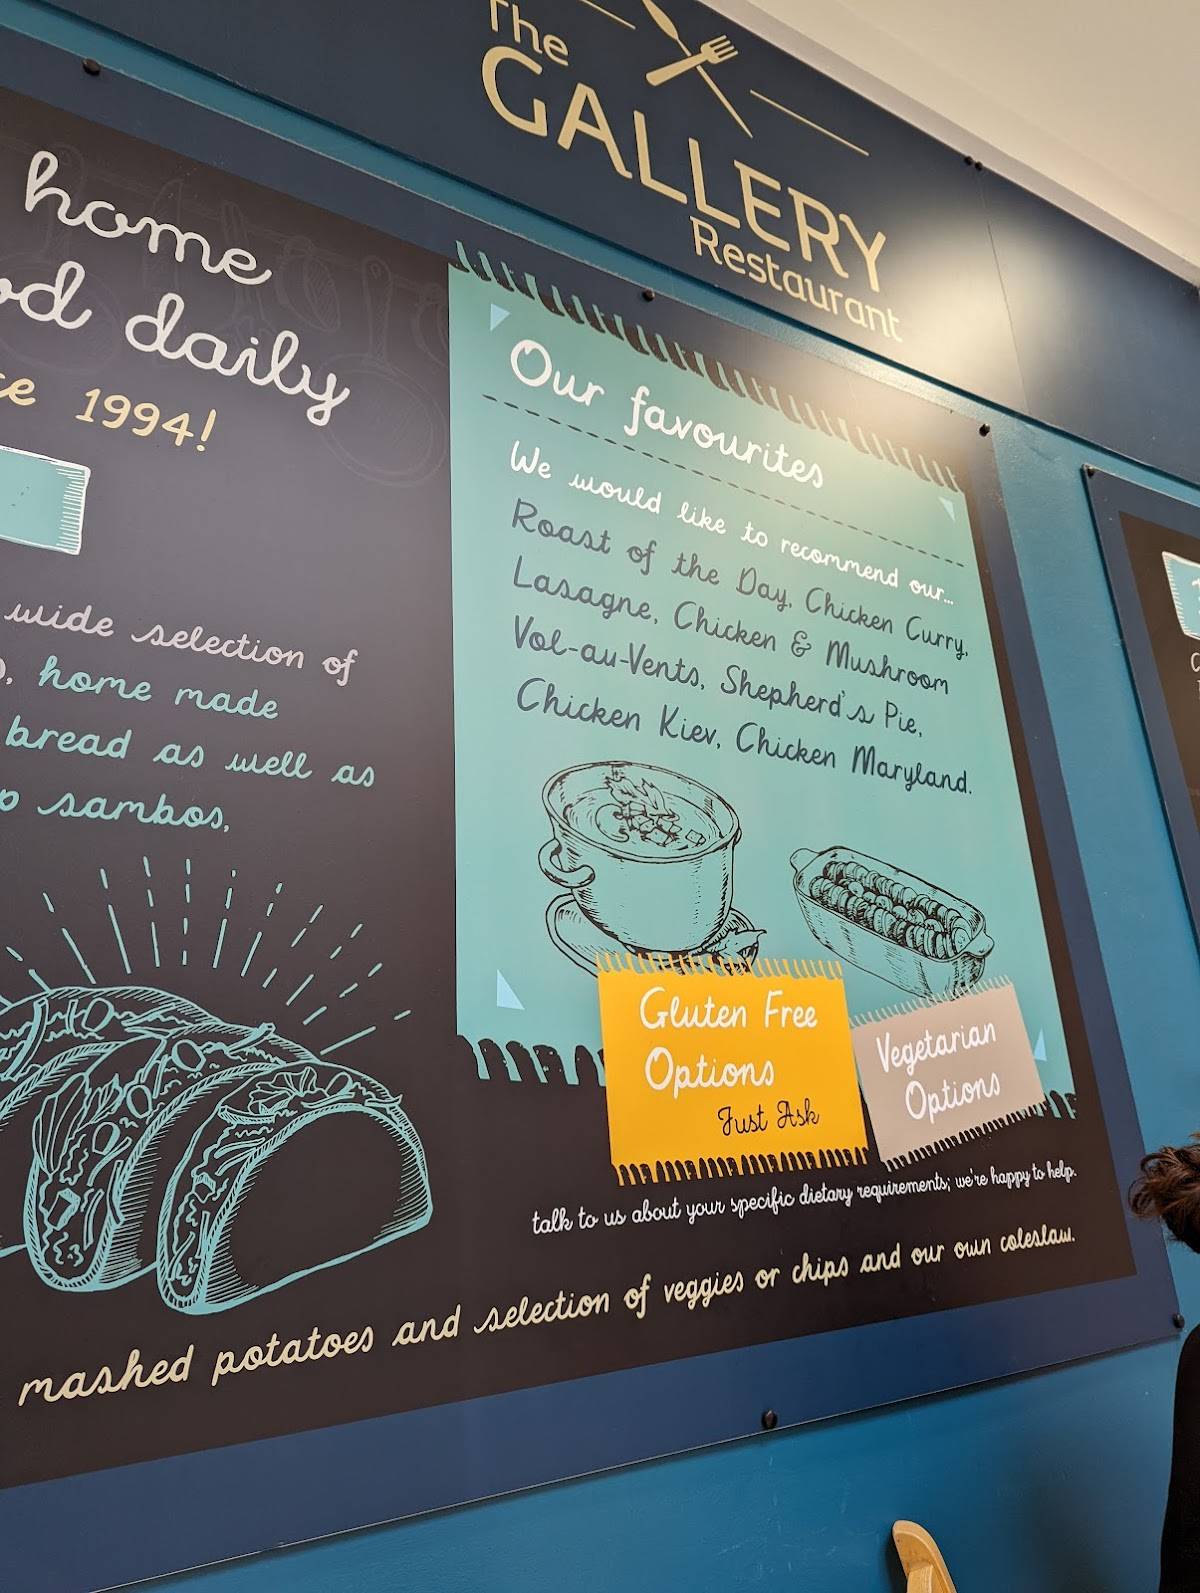 The
GALLERY
Restaurant
home
daily
1994!
wide selection of
home made
bread as well as
sambos,
Our favourites
We would like to recommend our...
Roast of the Day, Chicken Curry,
Lasagne, Chicken & Mushroom
Vol-au-Vents, Shepherd's Pie,
Chicken Kiev, Chicken Maryland.
Gluten Free
Options
Just Ask
Vegetarian
Options
talk to us about your specific dietary requirements; we're happy to help.
mashed potatoes and selection of veggies or chips and our own coleslaw.